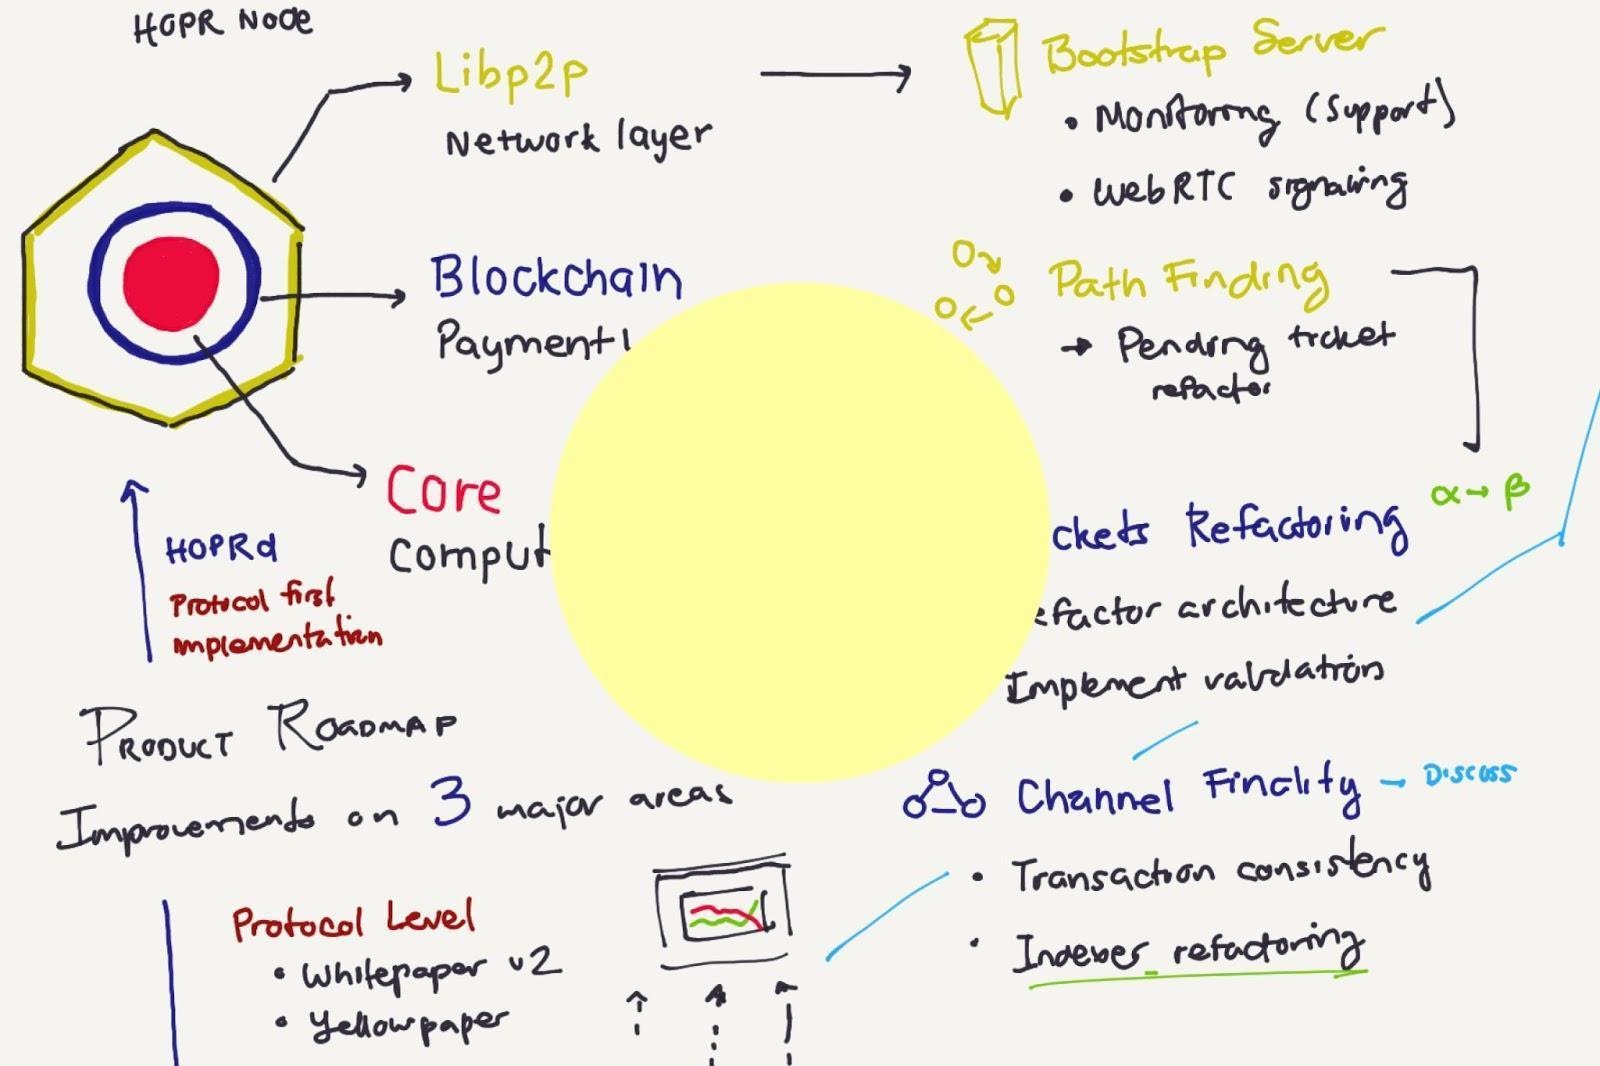 HOPR NODE
Libp2p
Network layer
Blockchain
Payment
Core
HOPRd
Protocol first
implementation
PRODUCT ROADMAP
Improvements on 3 major areas
Protocol Level
• Whitepaper v2
• Yellowpaper
Bootstrap Server
• Monitoring (support)
• WebRTC signaling
Path Finding
→ Pending ticket
refactor
α → β
Refactoring
architecture
Implement validation
Channel Finality - Discuss
• Transaction consistency
• Indexer refactoring